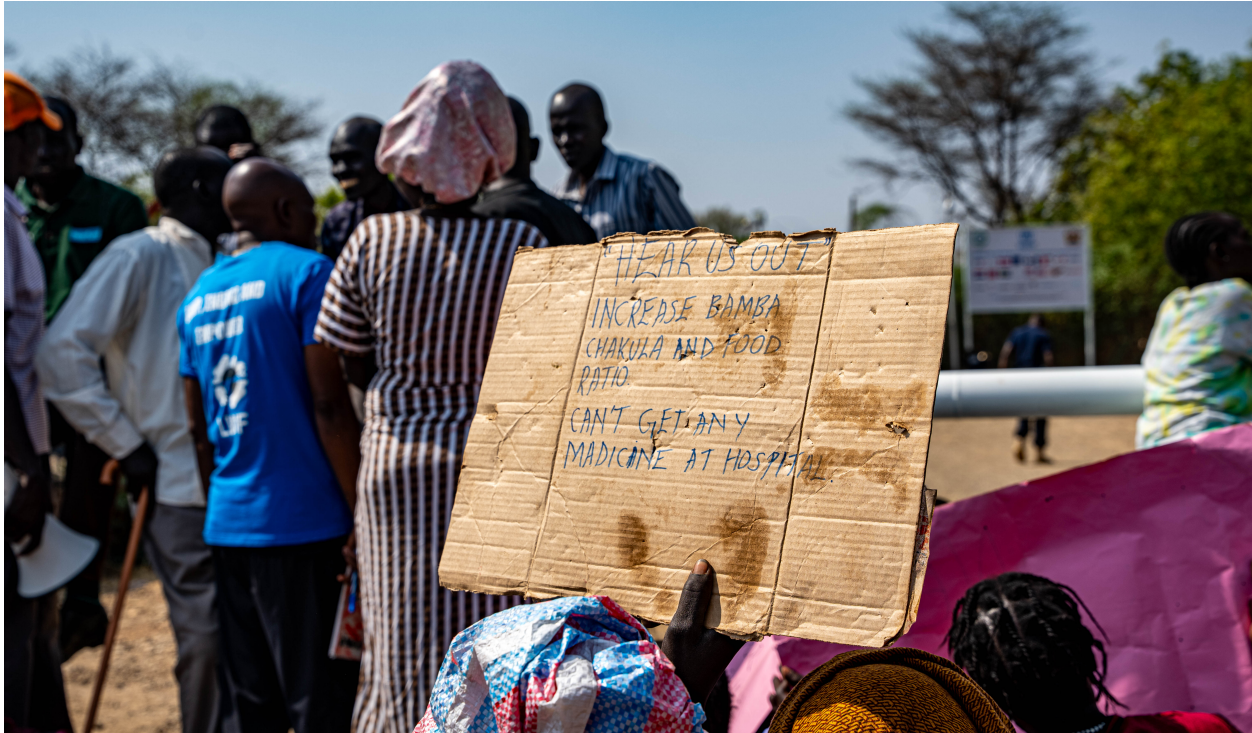 "HEAR US OUT"
INCREASE BAMBA
CHAKULA AND FOOD
RATIO.
CAN'T GET ANY
MADICINE AT HOSPITAL.